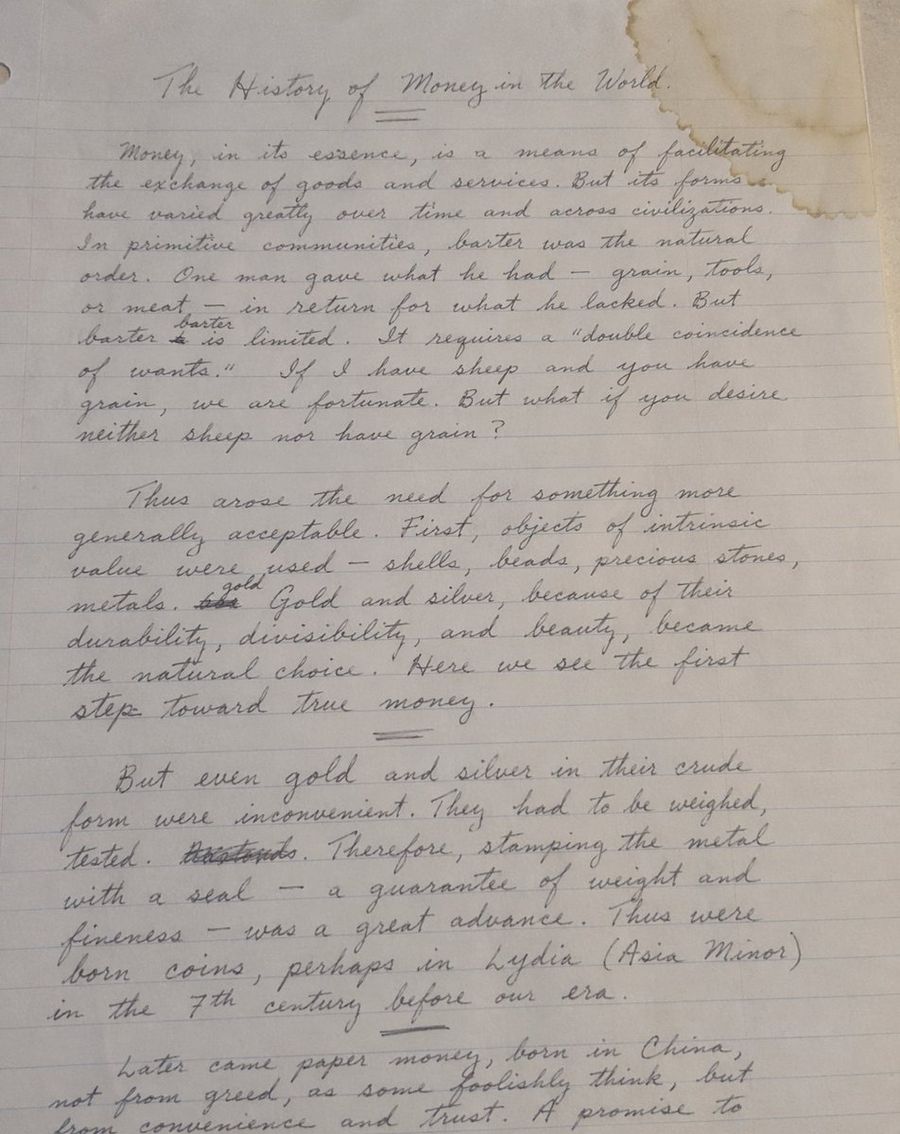 The History of Money in the World.
Money, in its essence, is a means of facilitating
the exchange of goods and services. But its forms
have varied greatly over time and across civilizations.
In primitive communities, barter was the natural
order. One man gave what he had — grain, tools,
or meat — in return for what he lacked. But
barter
barter is limited. It requires a "double coincidence
of wants." If I have sheep and you have
grain, we are fortunate. But what if you desire
neither sheep nor have grain?
Thus arose the need for something more
generally acceptable. First, objects of intrinsic
value were used — shells, beads, precious stones,
gold
metals. Gold and silver, because of their
durability, divisibility, and beauty, became
the natural choice. Here we see the first
step toward true money.
But even gold and silver in their crude
form were inconvenient. They had to be weighed,
tested. . Therefore, stamping the metal
with a seal — a guarantee of weight and
fineness — was a great advance. Thus were
born coins, perhaps in Lydia (Asia Minor)
in the 7th century before our era.
Later came paper money, born in China,
not from greed, as some foolishly think, but
from convenience and trust. A promise to